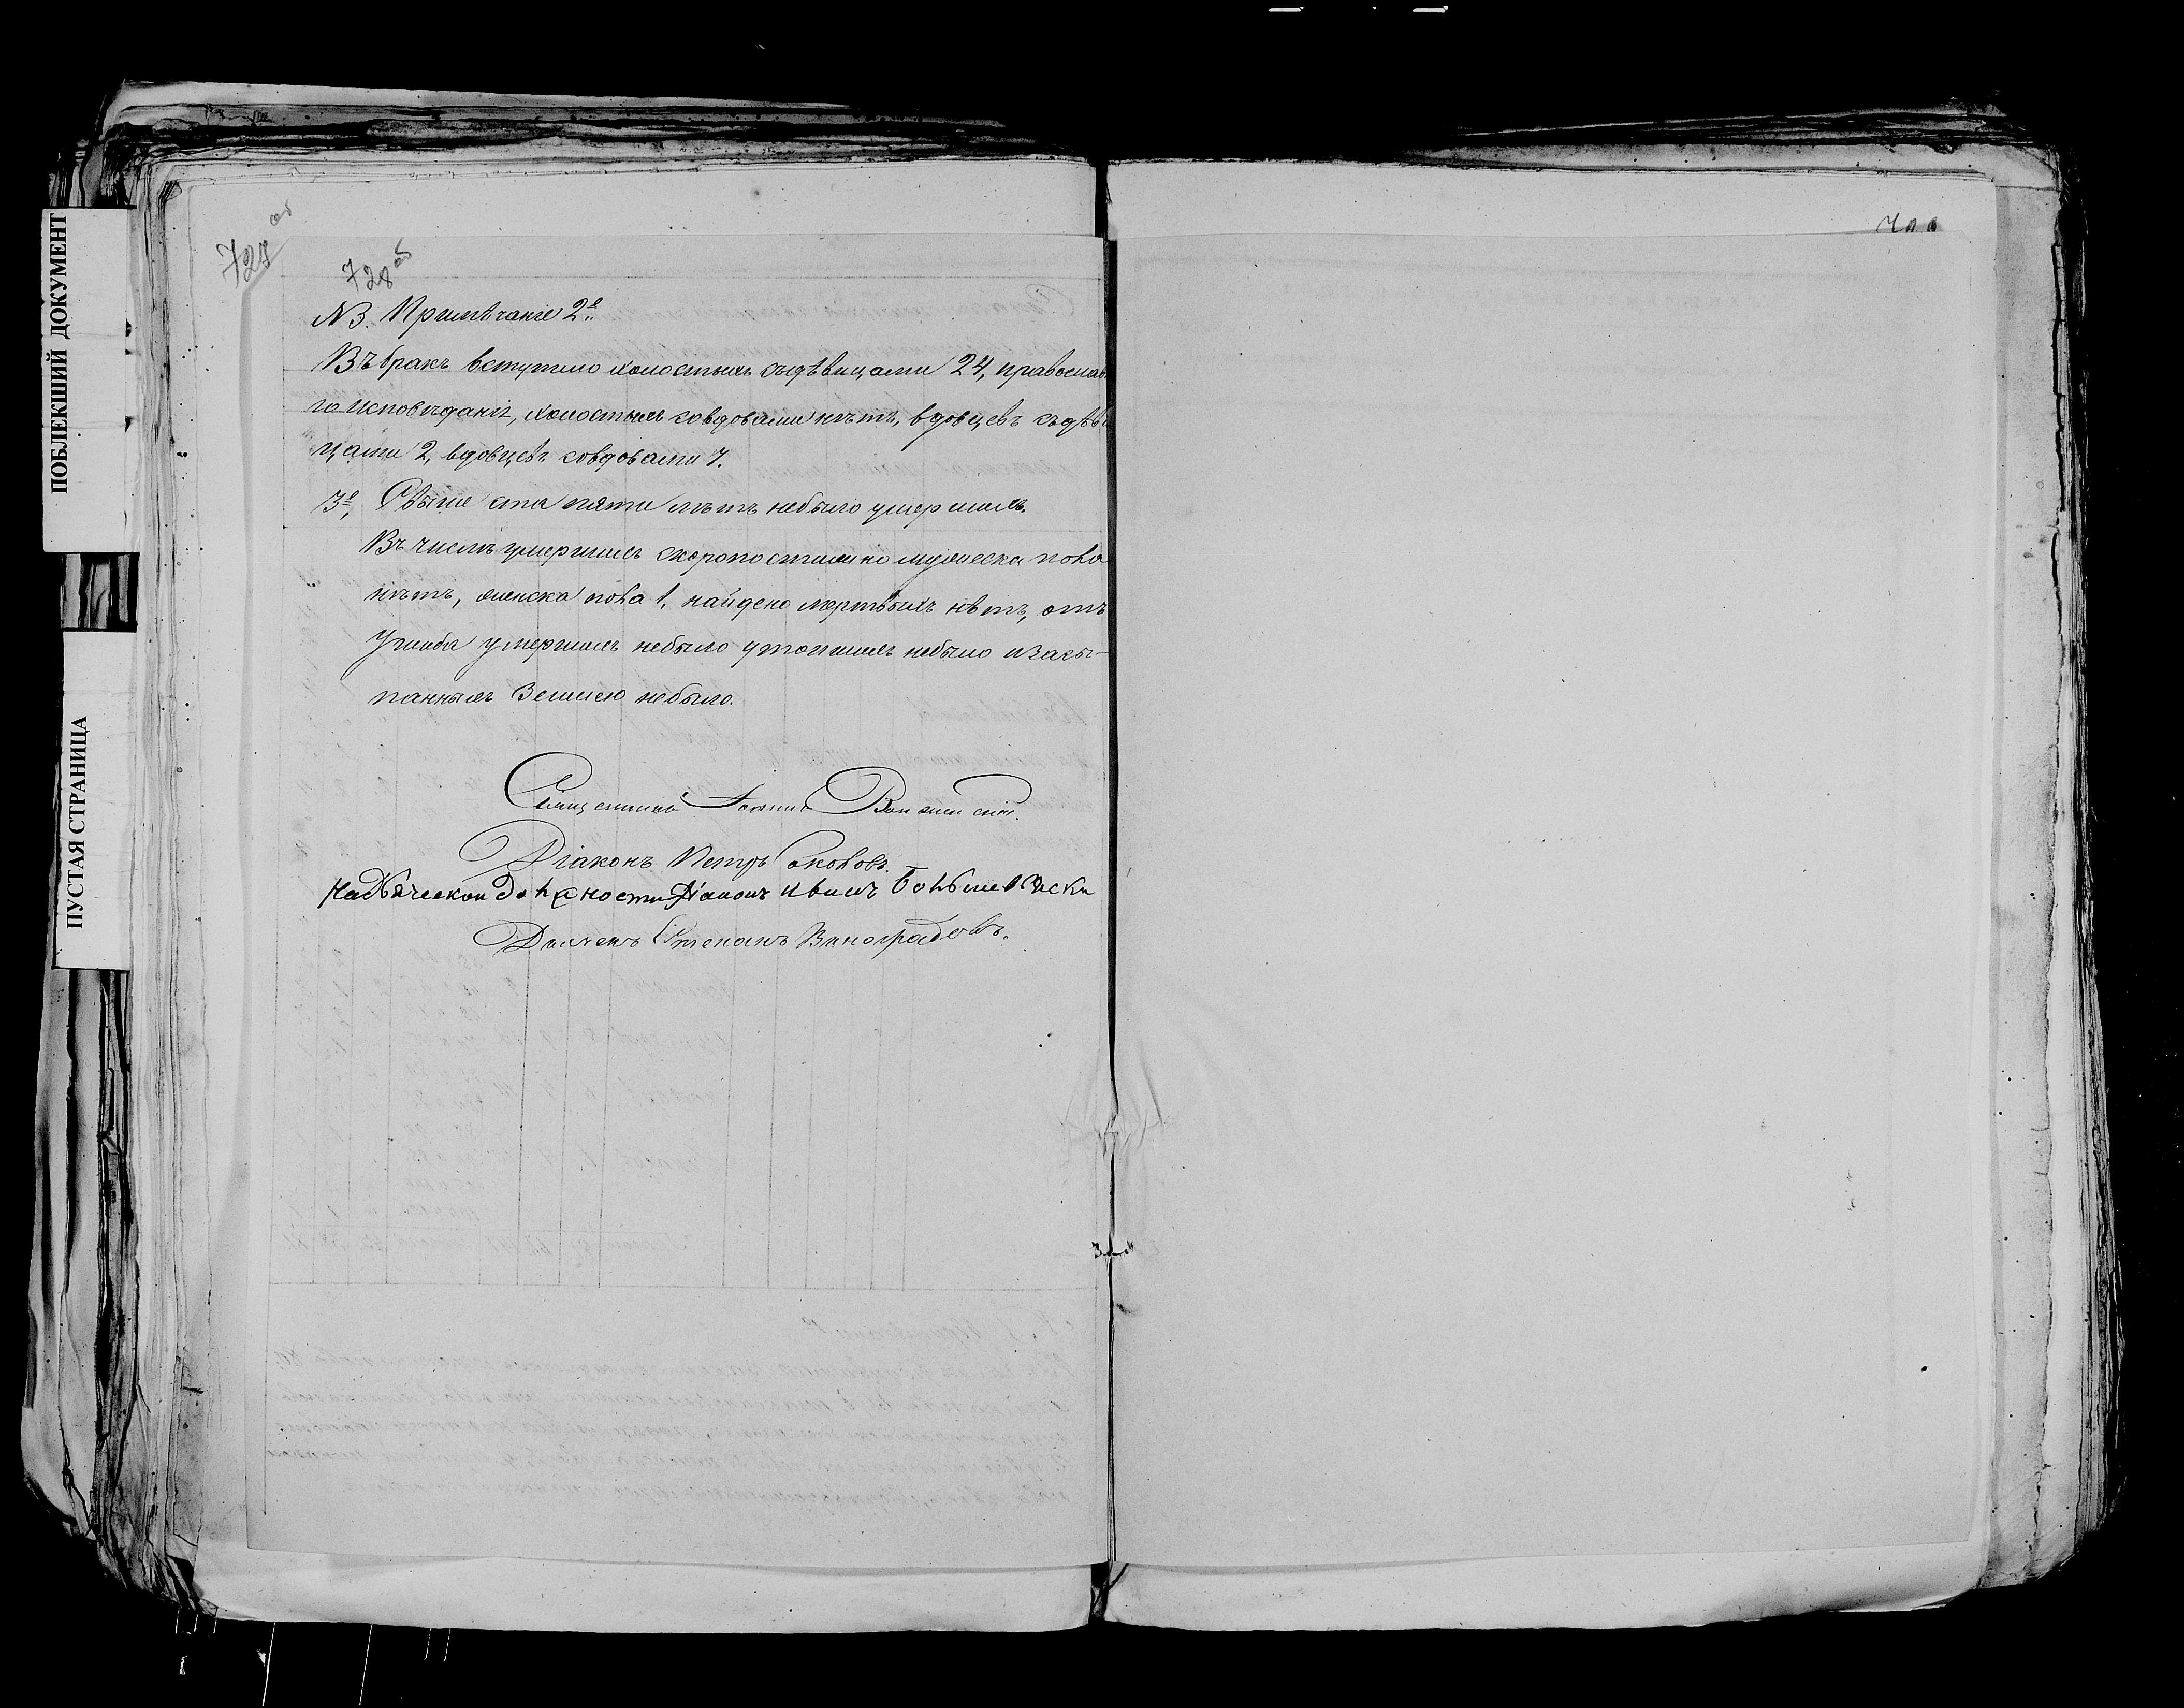 ПОБЛЕКШИЙ ДОКУМЕНТ
ПУСТАЯ СТРАНИЦА
728 об
728 об
NB. Примѣчаніе 2е
Въ бракъ вступило холостыхъ съ дѣвицами 24, православ
го исповѣданія, холостыхъ со вдовами нѣтъ, вдовцевъ съ дѣви
цами 2, вдовцевъ со вдовами 7.
3е, Свыше ста пяти лѣтъ небыло умершихъ.
Въ числѣ умершихъ скоропостижно мужеска пола
нѣтъ, женска пола 1, найдено мертвыхъ нѣтъ, отъ
умершихъ небыло утопшихъ небыло и засы-
панныхъ Землею небыло.
Священникъ Іоаннъ
Діаконъ Петръ Соколовъ.
На Дьяческой должности Діаконъ
Дьячекъ Степанъ Виноградовъ.